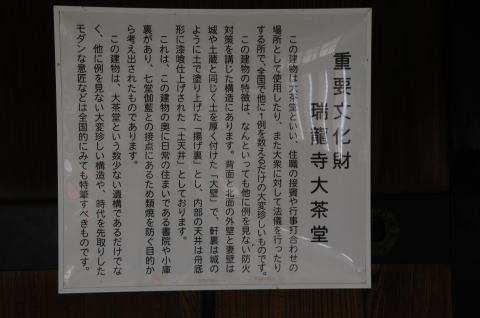 重要文化財
瑞龍寺大茶堂
この建物は大茶堂といい、住職の接賓や行事打合わせの
場所として使用したり、また大衆に対して法儀を行ったり
する所で、全国で他に1例を数えるだけの大変珍しいものです。
この建物の特徴は、なんといっても他に例を見ない防火
対策を講じた構造にあります。背面と北面の外壁と妻壁は
城や土蔵と同じく土を厚く付けた「大壁」で、軒裏は城の
ように土で塗り上げた「揚げ裏」とし、内部の天井は舟底
形に漆喰仕上げされた「土天井」としております。
これは、この建物の奥に日常の住まいである書院や小庫
裏があり、七堂伽藍との接点にあるため類焼を防ぐ目的か
ら考え出されたものであります。
この建物は、大茶堂という数少ない遺構であるだけでな
く、他に例を見ない大変珍しい構造や、時代を先取りした
モダンな意匠などは全国的にみても特筆すべきものです。